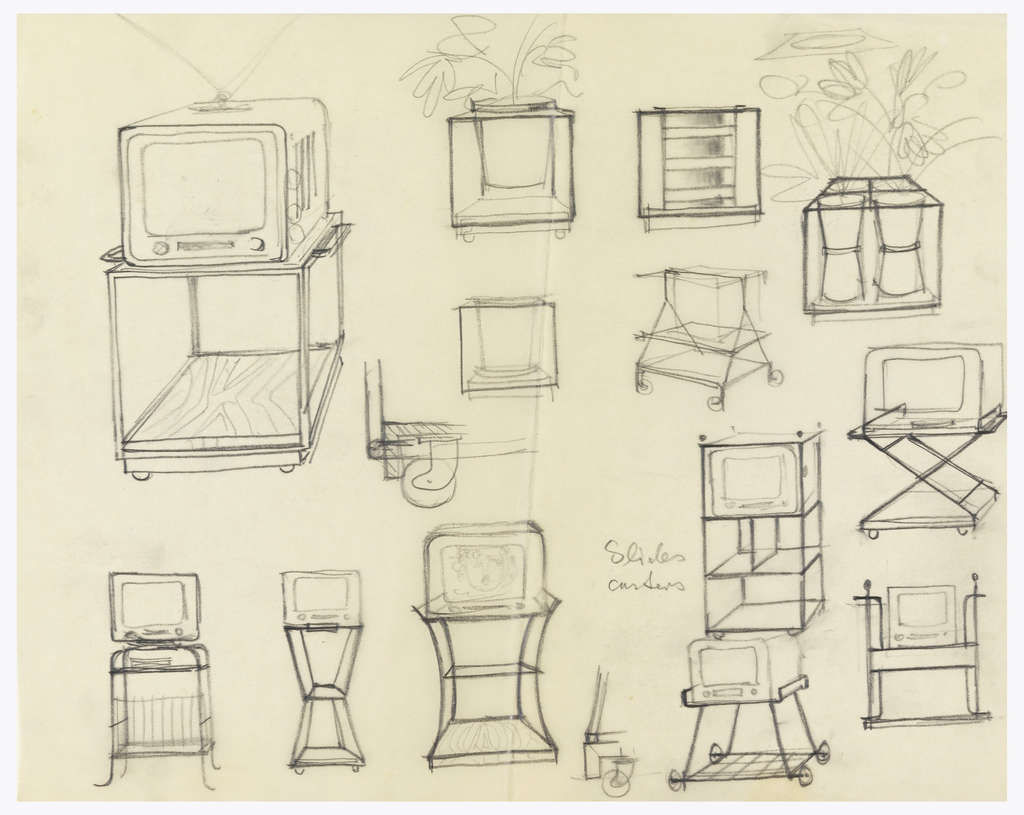 Slides
casters